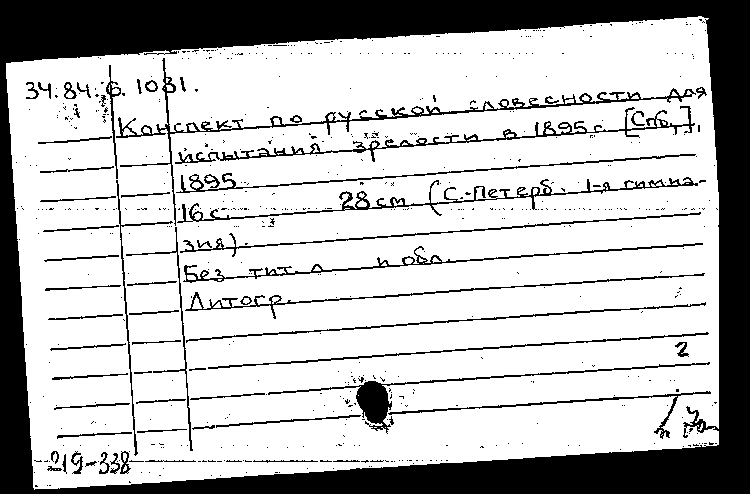 34.84.6.1081.
Конспект по русской словесности для
испытания зрелости в 1895 г. [Спб.],
1895
16 с. 28 см (С.-Петерб. 1-я гимна-
зия).
Без тит. л и обл.
Литогр.
2
219-338